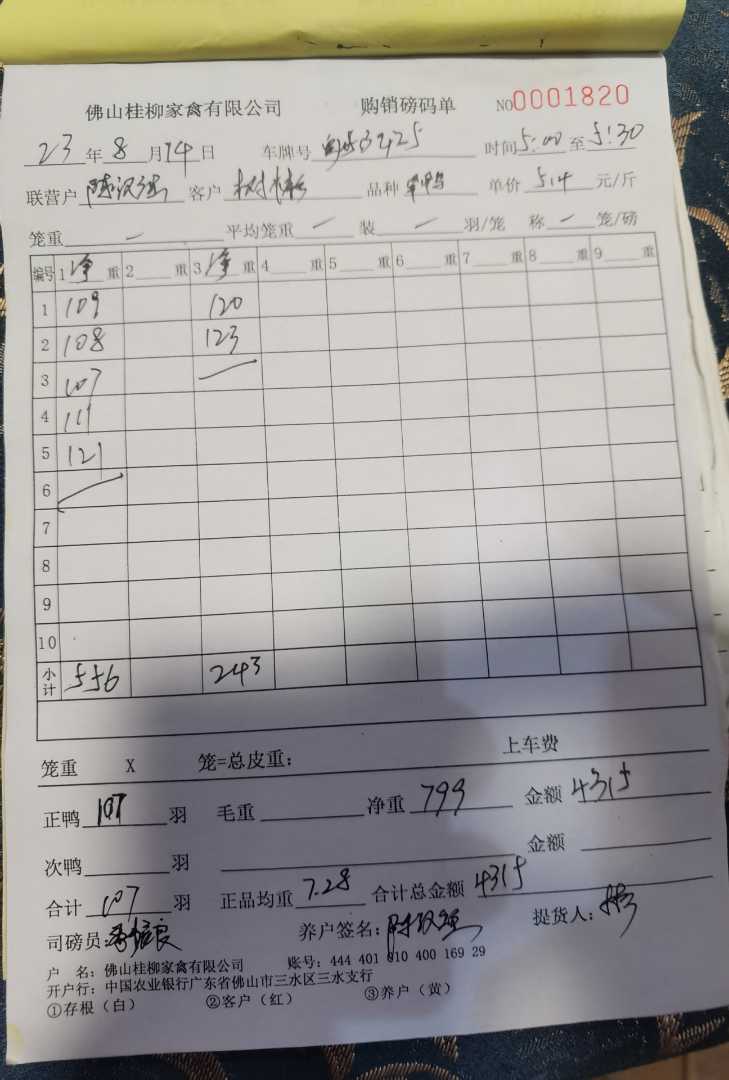 佛山桂柳家禽有限公司 购销磅码单 NO0001820
23年8月14日 车牌号 3425 时间5:00至5:30
联营户 陈汉强 客户 品种 单价 5.4 元/斤
笼重 — 平均笼重 — 装 — 羽/笼 称 — 笼/磅
编号 1净重 2 重 3净重 4 重 5 重 6 重 7 重 8 重 9 重
1 109 120
2 108 123
3 107
4 111
5 121
6
7
8
9
10
小计 556 243
笼重 X 笼=总皮重: 上车费
正鸭 107 羽 毛重 净重 799 金额 4315
次鸭 羽 金额
合计 107 羽 正品均重 7.28 合计总金额 4315
司磅员: 养户签名: 陈汉强 提货人:
户 名: 佛山桂柳家禽有限公司 账号: 444 401 010 400 169 29
开户行: 中国农业银行广东省佛山市三水区三水支行
①存根（白） ②客户（红） ③养户（黄）